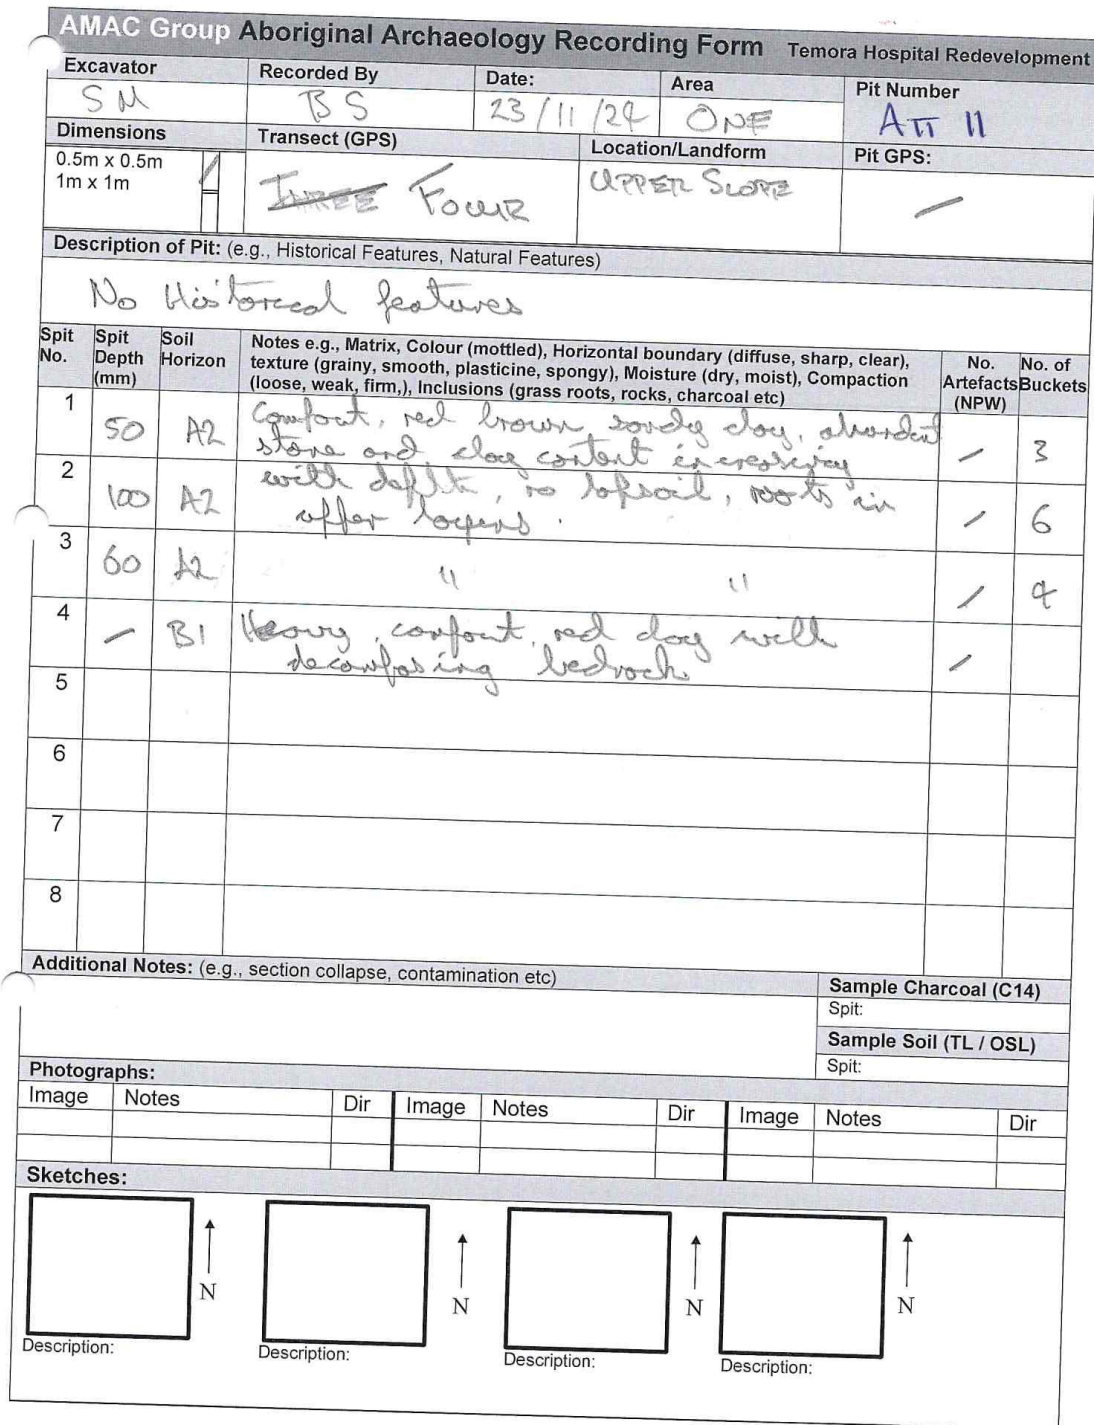 AMAC Group Aboriginal Archaeology Recording Form Temora Hospital Redevelopment
Excavator Recorded By Date: Area Pit Number
SM BS 23/11/24 ONE ATT 11
Dimensions Transect (GPS) Location/Landform Pit GPS:
0.5m x 0.5m /
1m x 1m
THREE FOUR UPPER SLOPE /
Description of Pit: (e.g., Historical Features, Natural Features)
No Historical features
Spit No. Spit Depth (mm) Soil Horizon Notes e.g., Matrix, Colour (mottled), Horizontal boundary (diffuse, sharp, clear),
texture (grainy, smooth, plasticine, spongy), Moisture (dry, moist), Compaction
(loose, weak, firm,), Inclusions (grass roots, rocks, charcoal etc) No. Artefacts (NPW) No. of Buckets
1 50 A2 Compact, red brown sandy clay, abundant
stone and clay content increasing / 3
2 100 A2 with depth, no topsoil, roots in
upper layers. / 6
3 60 A2 " " / 4
4 / B1 Heavy, compact, red clay with
decomposing bedrock /
5
6
7
8
Additional Notes: (e.g., section collapse, contamination etc)
Sample Charcoal (C14)
Spit:
Sample Soil (TL / OSL)
Spit:
Photographs:
Image Notes Dir Image Notes Dir Image Notes Dir
Sketches:
N N N N
Description: Description: Description: Description: